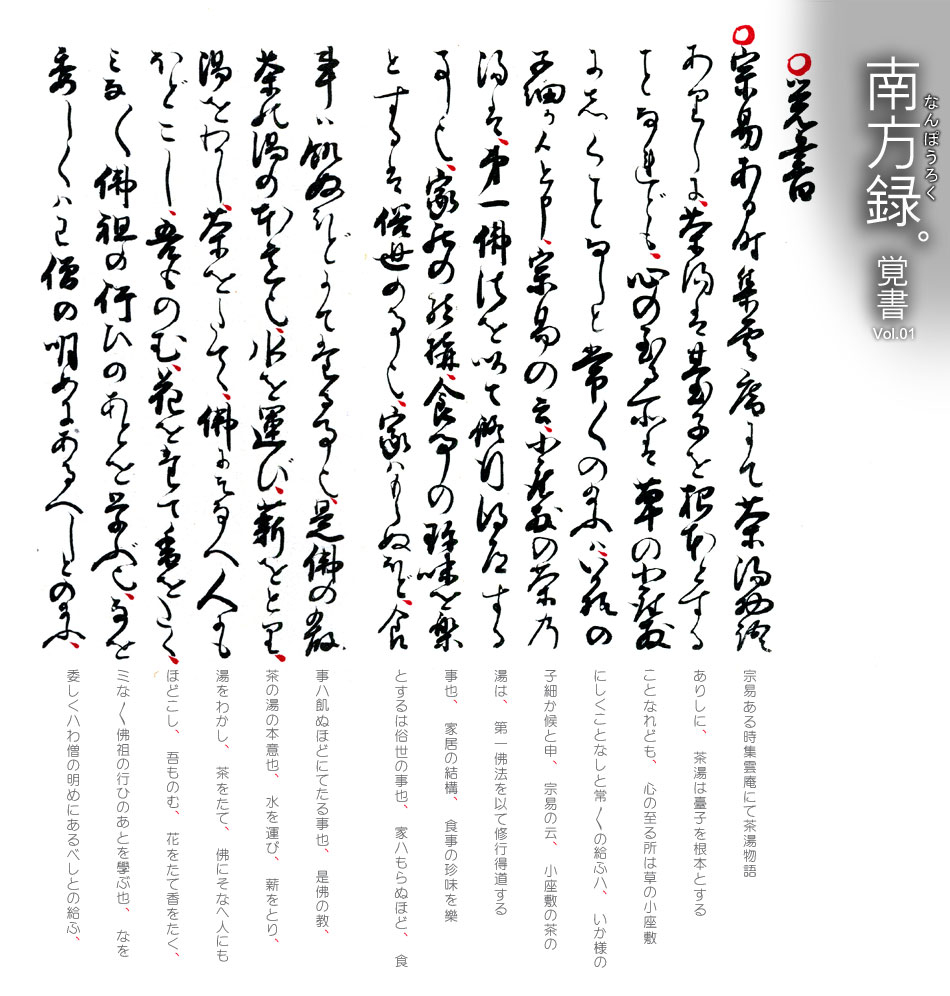 南方録。
なんぽうろく
覚書
Vol.01
覚書
宗易ある時集雲庵にて茶湯物語
ありしに、茶湯は臺子を根本とする
ことなれども、心の至る所は草の小座敷
にしくことなしと常〳〵の給ふハ、いか様の
子細か候と申、宗易の云、小座敷の茶の
湯は、第一佛法を以て修行得道する
事也、家居の結構、食事の珍味を樂
とするは俗世の事也、家ハもらぬほど、食
事ハ飢ぬほどにてたる事也、是佛の教
茶の湯の本意也、水を運び、薪をとり、
湯をわかし、茶をたて、佛にそなへ人にも
ほどこし、吾ものむ、花をたて香をたく、
ミな〳〵佛祖の行ひのあとを學ぶ也、なを
委しくハわ僧の明めにあるべしとの給ふ、
宗易ある時集雲庵にて茶湯物語
ありしに、茶湯は臺子を根本とする
ことなれども、心の至る所は草の小座敷
にしくことなしと常〳〵の給ふハ、いか様の
子細か候と申、宗易の云、小座敷の茶の
湯は、第一佛法を以て修行得道する
事也、家居の結構、食事の珍味を樂
とするは俗世の事也、家ハもらぬほど、食
事ハ飢ぬほどにてたる事也、是佛の教、
茶の湯の本意也、水を運び、薪をとり、
湯をわかし、茶をたて、佛にそなへ人にも
ほどこし、吾ものむ、花をたて香をたく、
ミな〳〵佛祖の行ひのあとを學ぶ也、なを
委しくハわ僧の明めにあるべしとの給ふ、